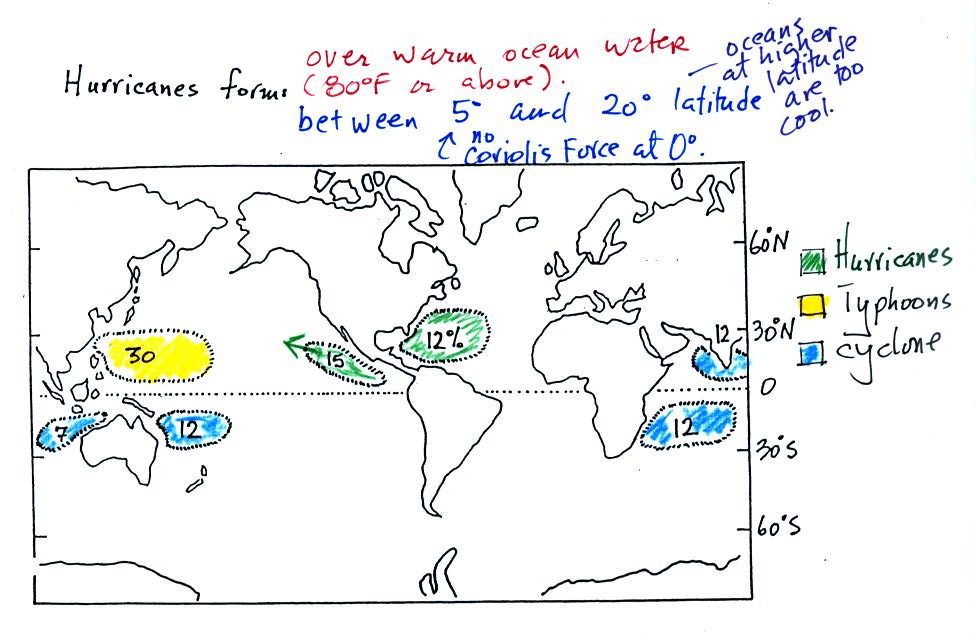 over warm ocean water
Hurricanes form: (80°F or above).
between 5° and 20° latitude
— oceans
at higher
latitude
are too
cool.
↑ no
Coriolis Force at 0°.
60°N
Hurricanes
Typhoons
12
30°N
12%
cyclone
30
15
0
7
12
12
30°S
60°S